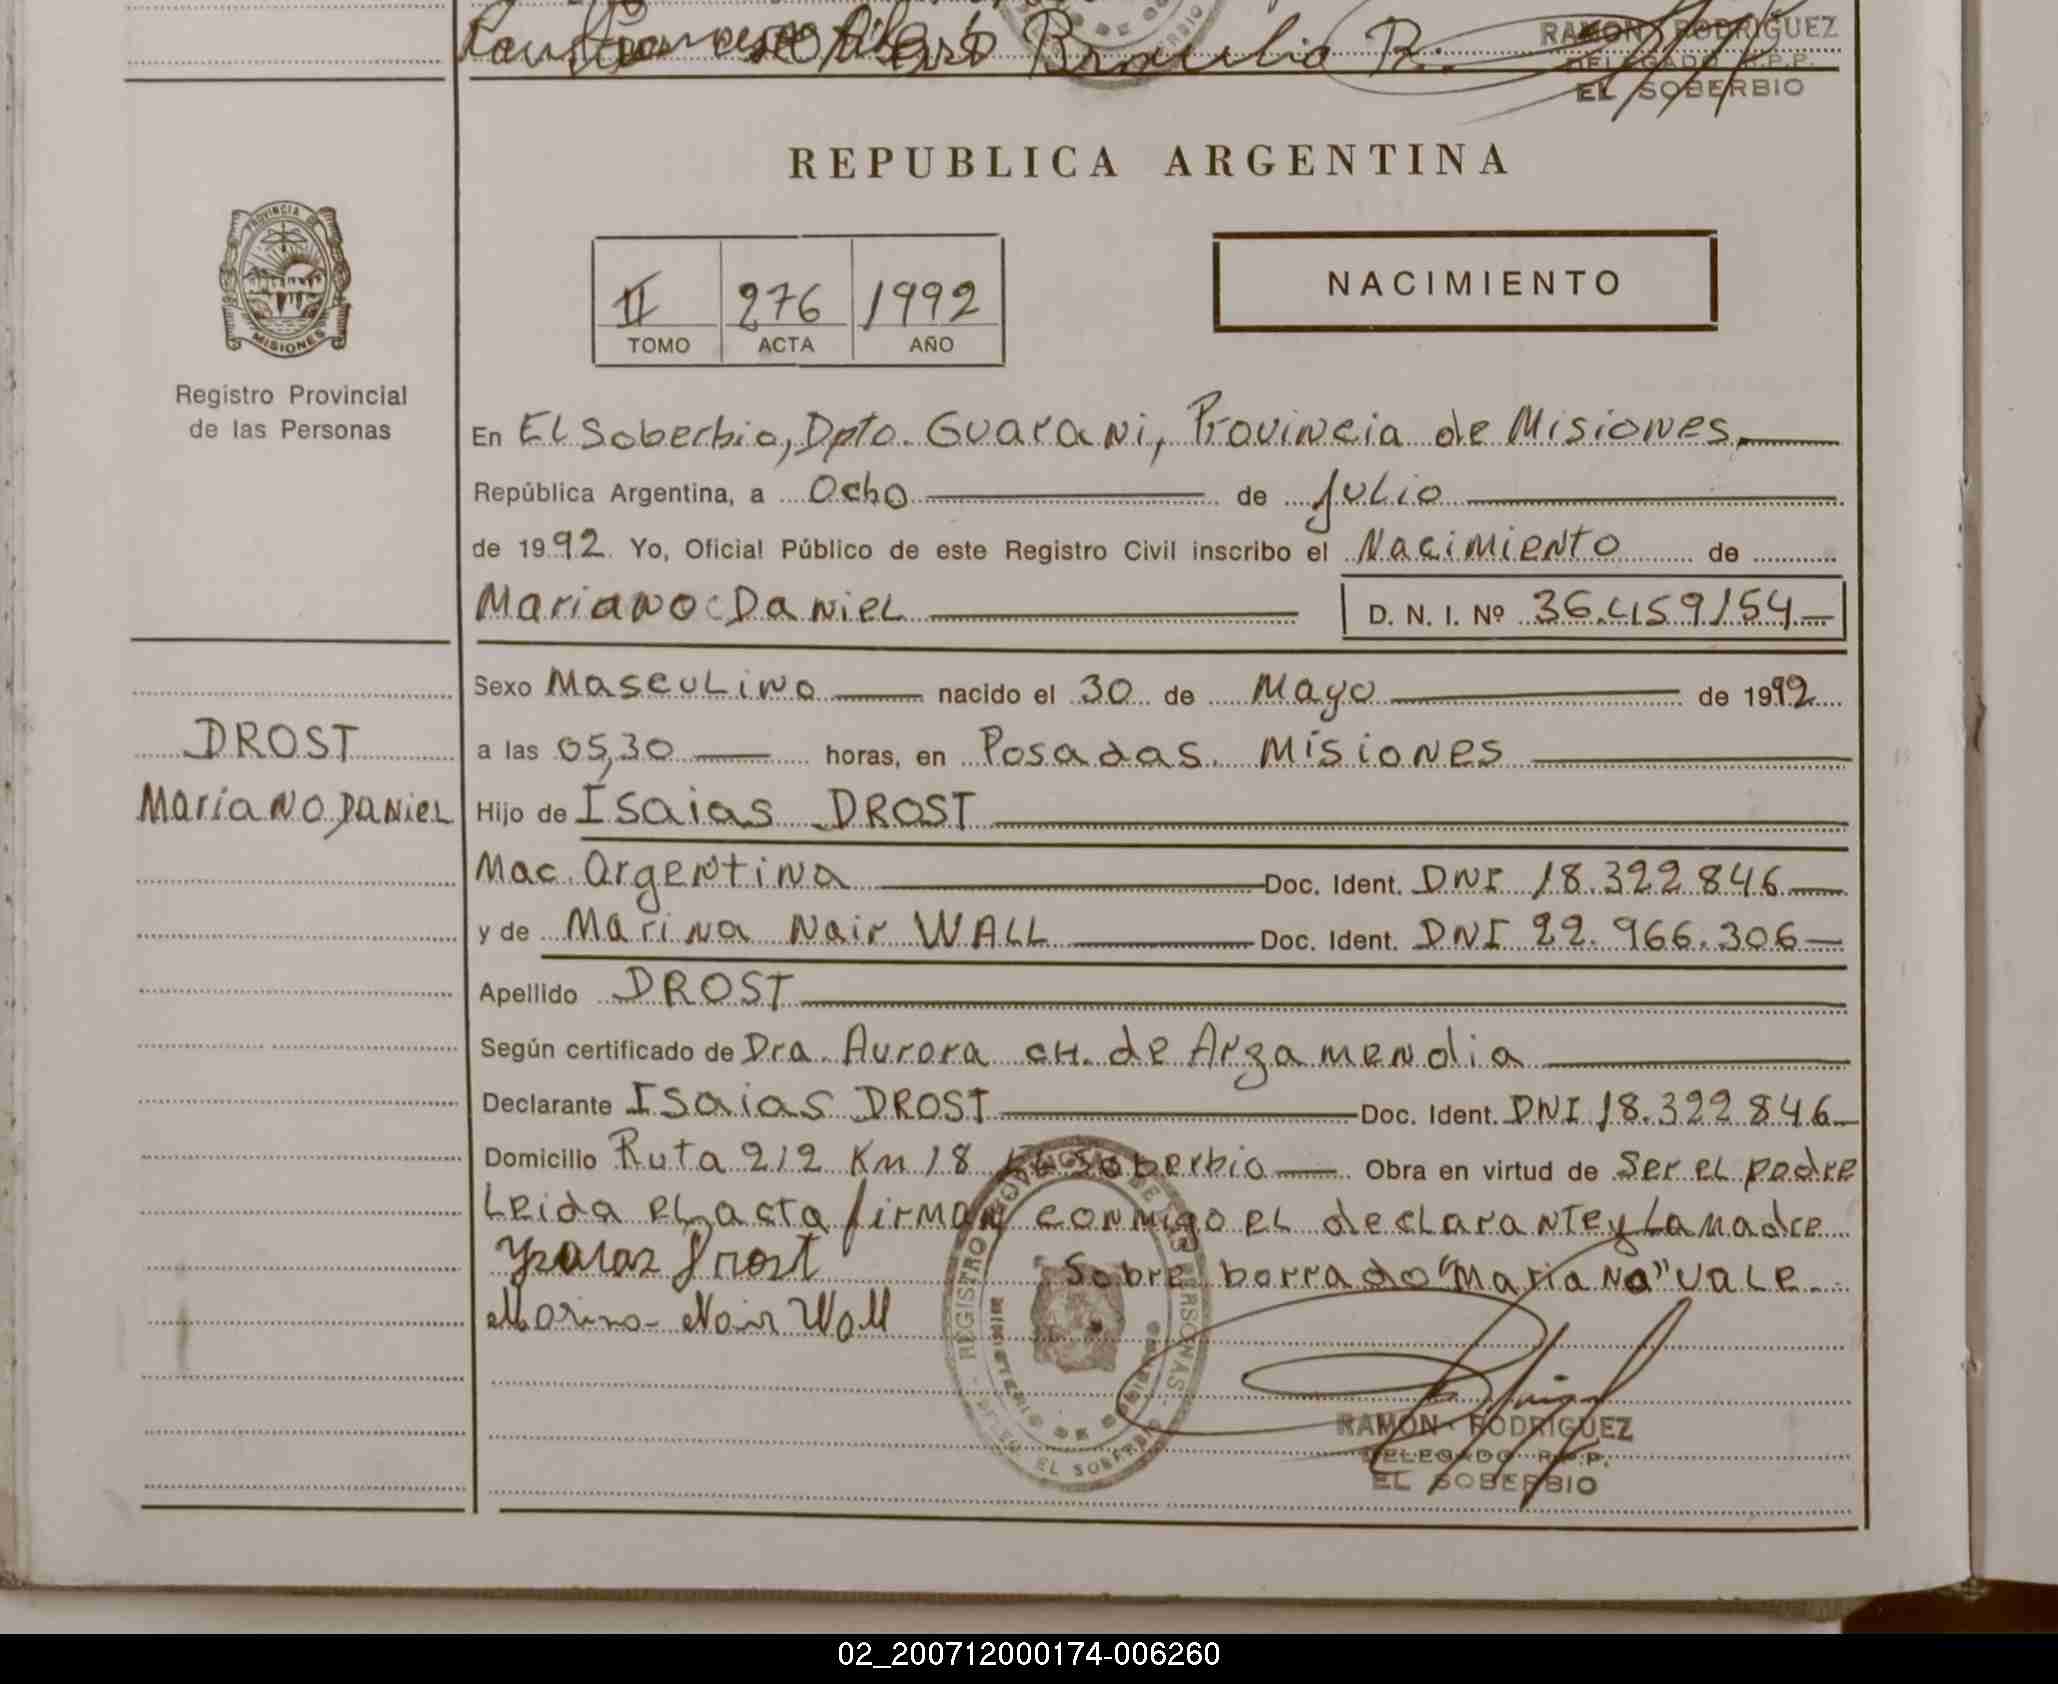 Braulio R.
RAMON RODRIGUEZ
DELEGADO R.P.P.
EL SOBERBIO
REPUBLICA ARGENTINA
PROVINCIA DE
MISIONES
Registro Provincial
de las Personas
II 276 1992
TOMO ACTA AÑO
NACIMIENTO
En El Soberbio, Dpto. Guarani, Provincia de Misiones,
República Argentina, a Ocho de Julio
de 1992 Yo, Oficial Público de este Registro Civil inscribo el Nacimiento de
Mariano Daniel D. N. I. Nº 36.459154
Sexo Masculino nacido el 30 de Mayo de 1992
DROST
Mariano Daniel
a las 05,30 horas, en Posadas. Misiones
Hijo de Isaias DROST
Nac. Argentina Doc. Ident. DNI 18.322846
y de Marina Nair WALL Doc. Ident. DNI 22.966.306
Apellido DROST
Según certificado de Dra. Aurora CH. de Arzamendia
Declarante Isaias DROST Doc. Ident. DNI 18.322846
Domicilio Ruta 212 Km 18 El Soberbio Obra en virtud de Ser el padre
Leida el acta firman conmigo el declarante y la madre
Ysaias Drost Sobre borrado "Mariano" vale
Marina Nair Wall
REGISTRO PROVINCIAL DE LAS PERSONAS
MINISTERIO DE GOBIERNO
EL SOBERBIO
RAMON RODRIGUEZ
DELEGADO R.P.P.
EL SOBERBIO
02_200712000174-006260